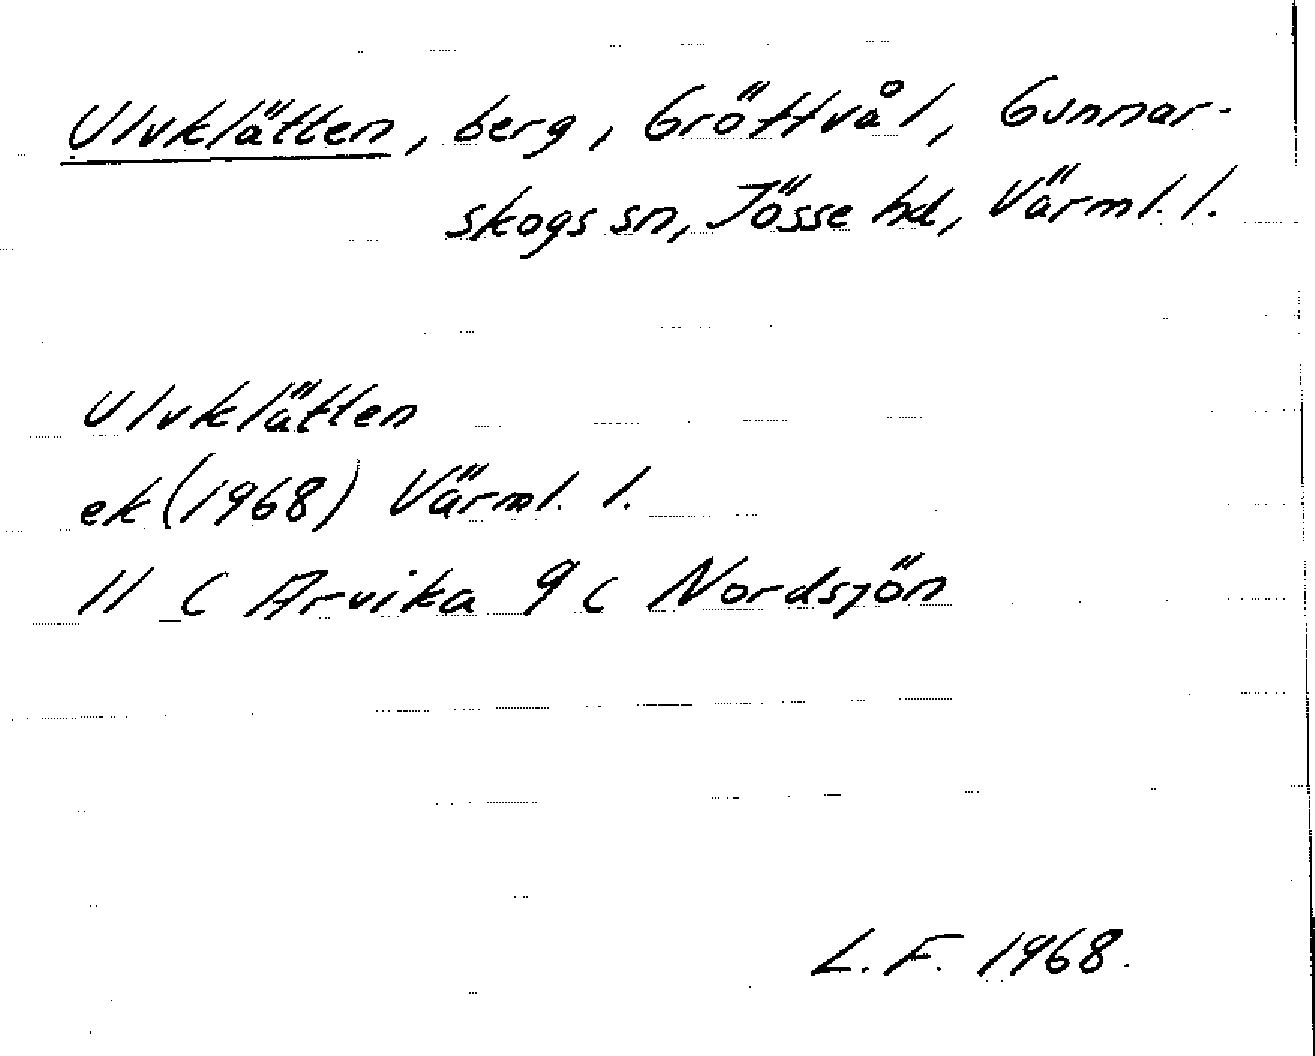 Ulvklätten, berg, Gröttvål, Gunnar-
skogs sn, Jösse hd, Värml. l.
Ulvklätten
ek (1968) Värml. l.
11 C Arvika 9 c Nordsjön
L. F. 1968.